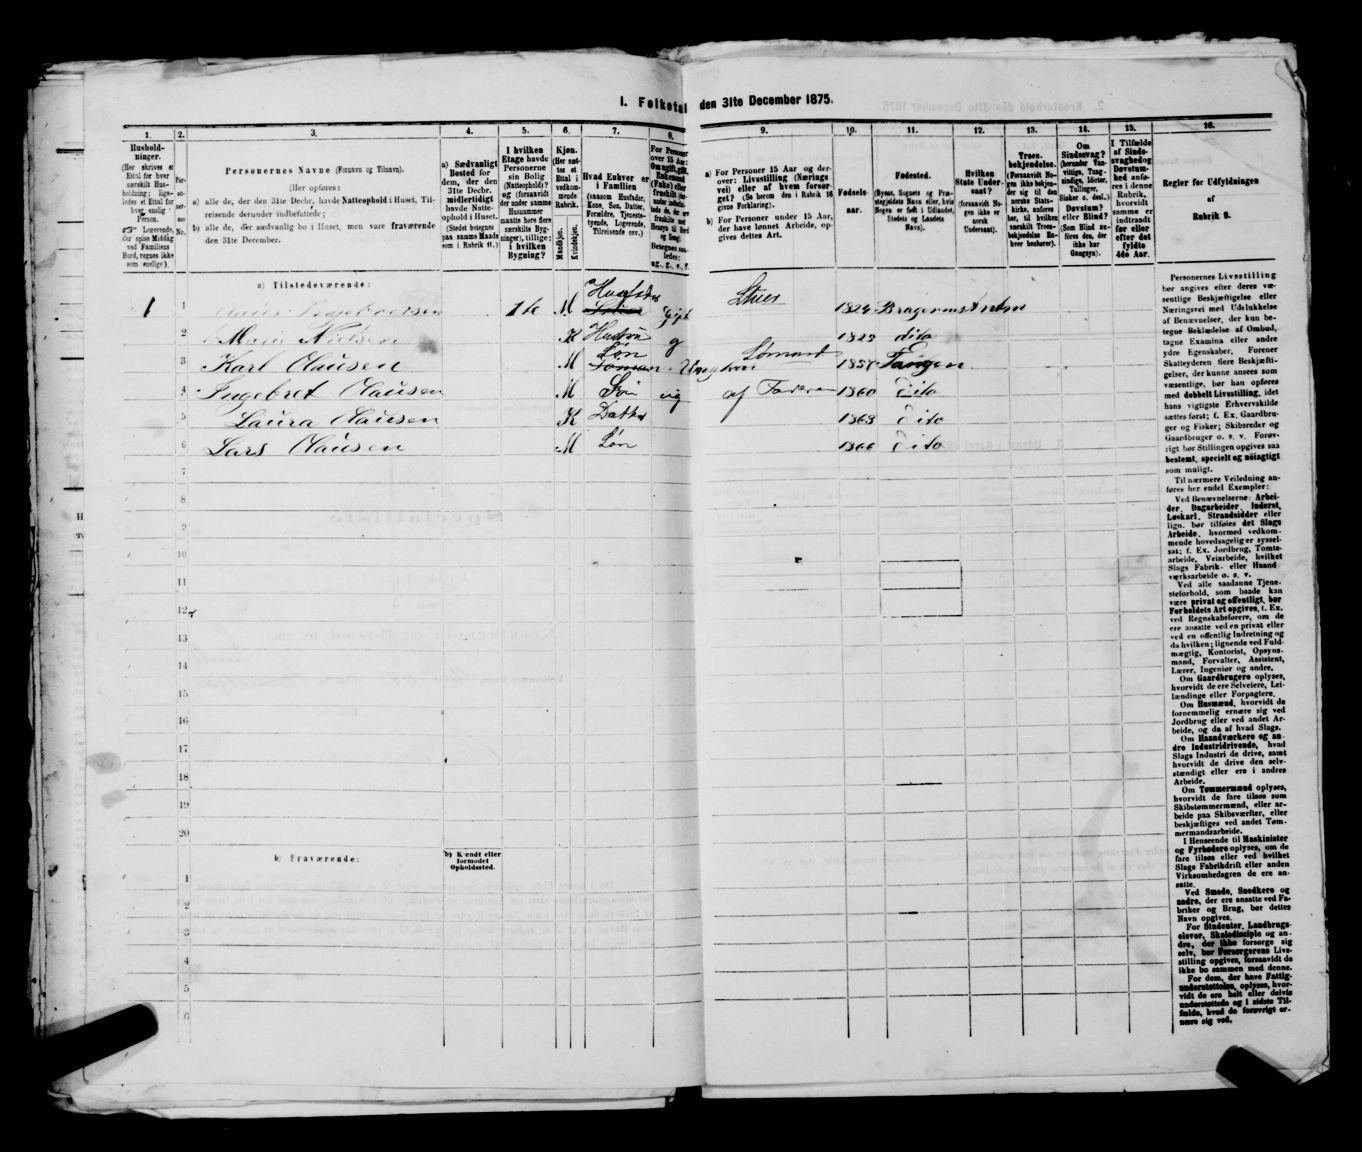 1. Folketal den 31te December 1875.
1. 2. 3. 4. 5. 6. 7. 8. 9. 10. 11. 12. 13. 14. 15. 16.
Hushold-
ninger.
(Her skrives et
Ettal for hver
særskilt Hus-
holdning; lige-
ledes et Ettal for
hver enslig
Person.
☞ Logerende,
der spise Middag
ved Familiens
Bord, regnes ikke
som enslige).
Per-
soner-
nes
No.
Personernes Navne (Fornavn og Tilnavn).
(Her opføres:
a) alle de, der den 31te Decbr. havde Natteophold i Huset, Til-
reisende derunder indbefattede;
b) alle de, der sædvanlig bo i Huset, men vare fraværende
den 31te December.
a) Sædvanligt
Bosted for
dem, der den
31te Decbr.
midlertidigt
havde Natte-
ophold i Huset.
(Stedet betegnes
paa samme Maade
som i Rubrik 11.)
I hvilken
Etage havde
Personerne
sin Bolig
(Natteophold)?
og (forsaavidt
der under samme
Husnummer
maatte høre flere
særskilte Byg-
ninger), tillige:
i hvilken
Bygning?
Kjøn.
(Her sæt-
tes et
Ettal i
vedkom-
mende
Rubrik.
Mandkjøn.
Kvindekjøn.
Hvad Enhver er
i Familien
(saasom Husfader,
Kone, Søn, Datter,
Forældre, Tjeneste-
tyende, Logerende,
Tilreisende osv.)
For Personer
over 15 Aar:
Om ugift, gift,
a) For Personer 15 Aar og der-
over: Livsstilling (Nærings
vei) eller af hvem forsør-
get? (Se herom den i Rubrik 16
givne Forklaring).
b) For Personer under 15 Aar,
der have lønnet Arbeide, op-
gives dettes Art.
Fødsels-
aar.
Fødested.
(Byens, Sognets og Præ-
stegjeldets Navn eller, hvis
Nogen er født i Udlandet,
Stedets og Landets
Navn).
Hvilken
Stats Under-
saat?
(forsaavidt No-
gen ikke er
norsk
Undersaat).
Troes-
bekjendelse.
(Forsaavidt No-
gen ikke bekjen-
der sig til den
norske Stats-
kirke, anføres
her, til hvilket
særskilt Troes-
bekjendelse En-
hver henhører).
Om
Sindssvag?
(herunder Van-
vittige, Tung-
sindige, Idioter,
Tullinger,
Sinker o. desl.)
Døvstum?
eller Blind?
(Som Blind an-
føres den, der
ikke har
Gangsyn).
I Tilfælde
af Sinds-
svaghed og
Døvstum-
hed anfø-
res i denne
Rubrik,
hvorvidt
samme er
indtraadt
før eller
efter det
fyldte
4de Aar.
Regler for Udfyldningen
af
Rubrik 9.
a) Tilstedeværende:
1 1 1 te M Husfader Gift 1824
2 Nielsen K Hustru g 1829 dito
3 Karl Clausen M Søn Ungkar Sømand 1857 Tangen
4 Ingebret Clausen M Søn ug af Faderen 1860 Dito
5 Laura Clausen K Datter 1863 Dito
6 Lars Clausen M Søn 1866 Dito
7
8
9
10
11
12
13
14
15
16
17
18
19
20
b) Fraværende:
b) Kjendt eller
formodet
Opholdssted.
1
2
3
4
5
6
Personernes Livsstilling
bør angives efter deres væ-
sentlige Beskjæftigelse eller
Næringsvei med Udelukkelse
af Benævnelser, der kun be-
tegne Beklædelse af Ombud,
tagne Examina eller andre
ydre Egenskaber. Forener
Skatteyderen flere Beskjæfti-
gelser, der kunne ansees som
væsentlige, bør han opføres
med dobbelt Livsstilling, idet
hans vigtigste Erhvervskilde
sættes først; f. Ex. Gaardbru-
ger og Fisker; Skibsreder og
Gaardbruger o. s. v. Forøv-
rigt bør Stillingen opgives saa
bestemt, specielt og nöiagtigt
som muligt.
Til nærmere Veiledning an-
føres her endel Exempler:
Ved Benævnelserne: Arbei-
der, Dagarbeider, Inderst,
Løskarl, Strandsidder eller
lign. bør tilføies det Slags
Arbeide, hvormed vedkom-
mende hovedsagelig er syssel-
sat; f. Ex. Jordbrug, Tomte-
arbeide, Veiarbeide, hvilket
Slags Fabrik- eller Haand-
værksarbeide o. s. v.
Ved alle saadanne Tjene-
steforhold, som baade kan
være privat og offentligt, bør
Forholdets Art opgives, t. Ex.
ved Regnskabsførere, om de
ere ansatte ved en privat eller
ved en offentlig Indretning og
da hvilken; lignende ved Fuld-
mægtig, Kontorist, Opsyns-
mand, Forvalter, Assistent,
Lærer, Ingeniør og andre.
Om Gaardbrugere oplyses,
hvorvidt de ere Selveiere, Lei-
lændinge eller Forpagtere.
Om Husmænd, hvorvidt de
fornemmelig ernære sig ved
Jordbrug eller ved andet Ar-
beide, og da af hvad Slags.
Om Haandværkere og an-
dre Industridrivende, hvad
Slags Industri de drive, samt
hvorvidt de drive den selv-
stændigt eller ere i andres
Arbeide.
Om Tømmermænd oplyses,
hvorvidt de fare tilsøs som
Skibstømmermænd, eller ar-
beide paa Skibsværfter, eller
beskjæftiges ved andet Tøm-
mermandsarbeide.
I Henseende til Maskinister
og Fyrbødere oplyses, om de
fare tilsøs eller ved hvilket
Slags Fabrikdrift eller anden
Virksomhedsgren de ere an-
satte.
Ved Smede, Snedkere og
andre, der ere ansatte ved Fa-
briker og Brug, bør dettes
Navn opgives.
For Studenter, Landbrugs-
elever, Skoledisciple og an-
dre, der ikke forsørge sig
selv, bør Forsørgerens Livs-
stilling opgives, forsaavidt de
ikke bo sammen med denne.
For dem, der have Fattig-
understøttelse, oplyses, hvor-
vidt de ere helt eller delvis
understøttede og i sidste Til-
fælde, hvad de forøvrigt er-
nære sig ved.